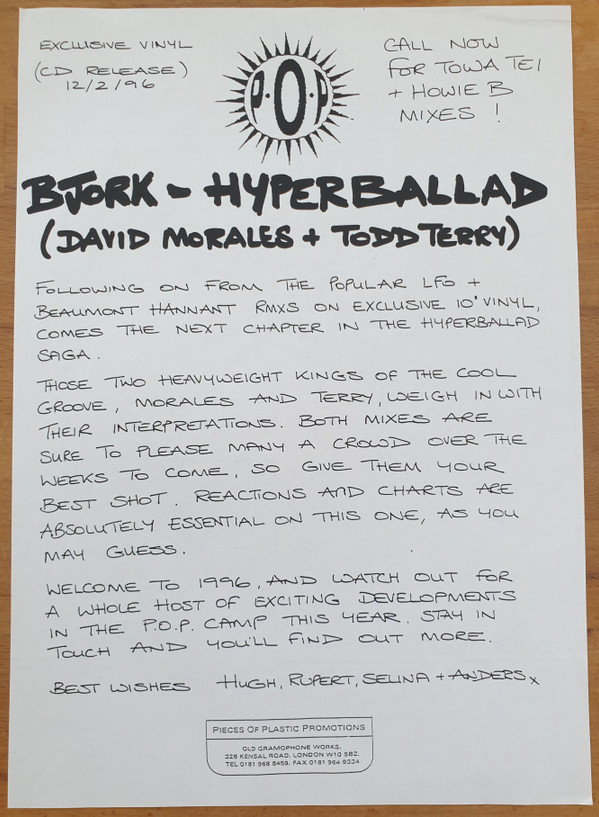 EXCLUSIVE VINYL
(CD RELEASE)
12/2/96
P.O.P
CALL NOW
FOR TOWA TEI
+ HOWIE B
MIXES !
BJORK - HYPERBALLAD
(DAVID MORALES + TODD TERRY)
FOLLOWING ON FROM THE POPULAR LFO +
BEAUMONT HANNANT RMXS ON EXCLUSIVE 10" VINYL,
COMES THE NEXT CHAPTER IN THE HYPERBALLAD
SAGA.
THOSE TWO HEAVYWEIGHT KINGS OF THE COOL
GROOVE, MORALES AND TERRY, WEIGH IN WITH
THEIR INTERPRETATIONS. BOTH MIXES ARE
SURE TO PLEASE MANY A CROWD OVER THE
WEEKS TO COME, SO GIVE THEM YOUR
BEST SHOT. REACTIONS AND CHARTS ARE
ABSOLUTELY ESSENTIAL ON THIS ONE, AS YOU
MAY GUESS.
WELCOME TO 1996, AND WATCH OUT FOR
A WHOLE HOST OF EXCITING DEVELOPMENTS
IN THE P.O.P. CAMP THIS YEAR. STAY IN
TOUCH AND YOU'LL FIND OUT MORE.
BEST WISHES HUGH, RUPERT, SELINA + ANDERS x
PIECES OF PLASTIC PROMOTIONS
OLD GRAMOPHONE WORKS,
326 KENSAL ROAD, LONDON W10 5BZ.
TEL 0181 968 8459. FAX 0181 964 9334